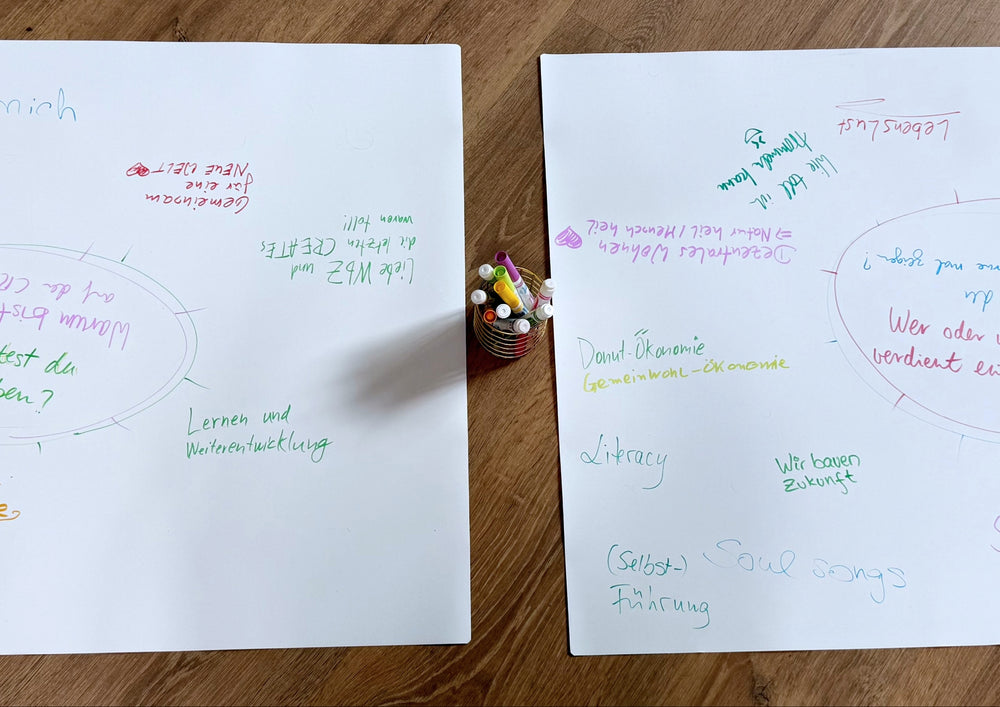 mich
Gemeinsam
für eine
NEUE WELT
Liebe WBZ und
die letzten CREATEs
waren toll!
Warum bist
auf der
test du
ben?
Lernen und
Weiterentwicklung
LebensLust
Wie toll ich
kann
Dezentrales Wohnen
⇒ Natur heil / Mensch heil
Donut-Ökonomie
Gemeinwohl-Ökonomie
Literacy
Wir bauen
Zukunft
(Selbst-)
Führung
Soul songs
du
mal zeigen?
Wer oder
verdient